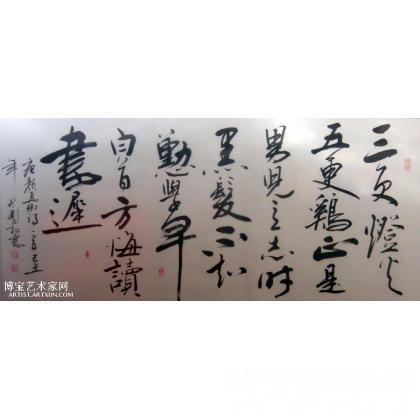 三更燈火
五更鷄正是
男兒立志時
黑髮不知
懃學早
白首方悔讀
書遲
唐顏真卿詩一首己丑
年
博宝艺术家网
ARTIST.ARTXUN.COM